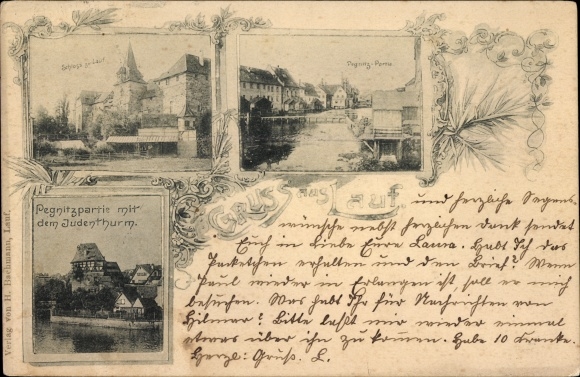 Schloss in Lauf
Pegnitz-Partie
Pegnitzpartie mit
dem Judenthurm.
Gruss aus Lauf.
Verlag von H. Bachmann, Lauf.
und herzliche Segens-
wünsche nebst herzlichen dank sendet
Euch in Liebe Eure Laura. Habt Ihr das
Packetchen erhalten und den Brief? Wenn
Paul wieder in Erlangen ist, soll er mich
besuchen. Was habt Ihr für Nachrichten von
Hilmar? Bitte laßt mir wieder einmal
etwas über ihn zu komen. Habe 10 Kranke.
Herzl: Gruß. L.